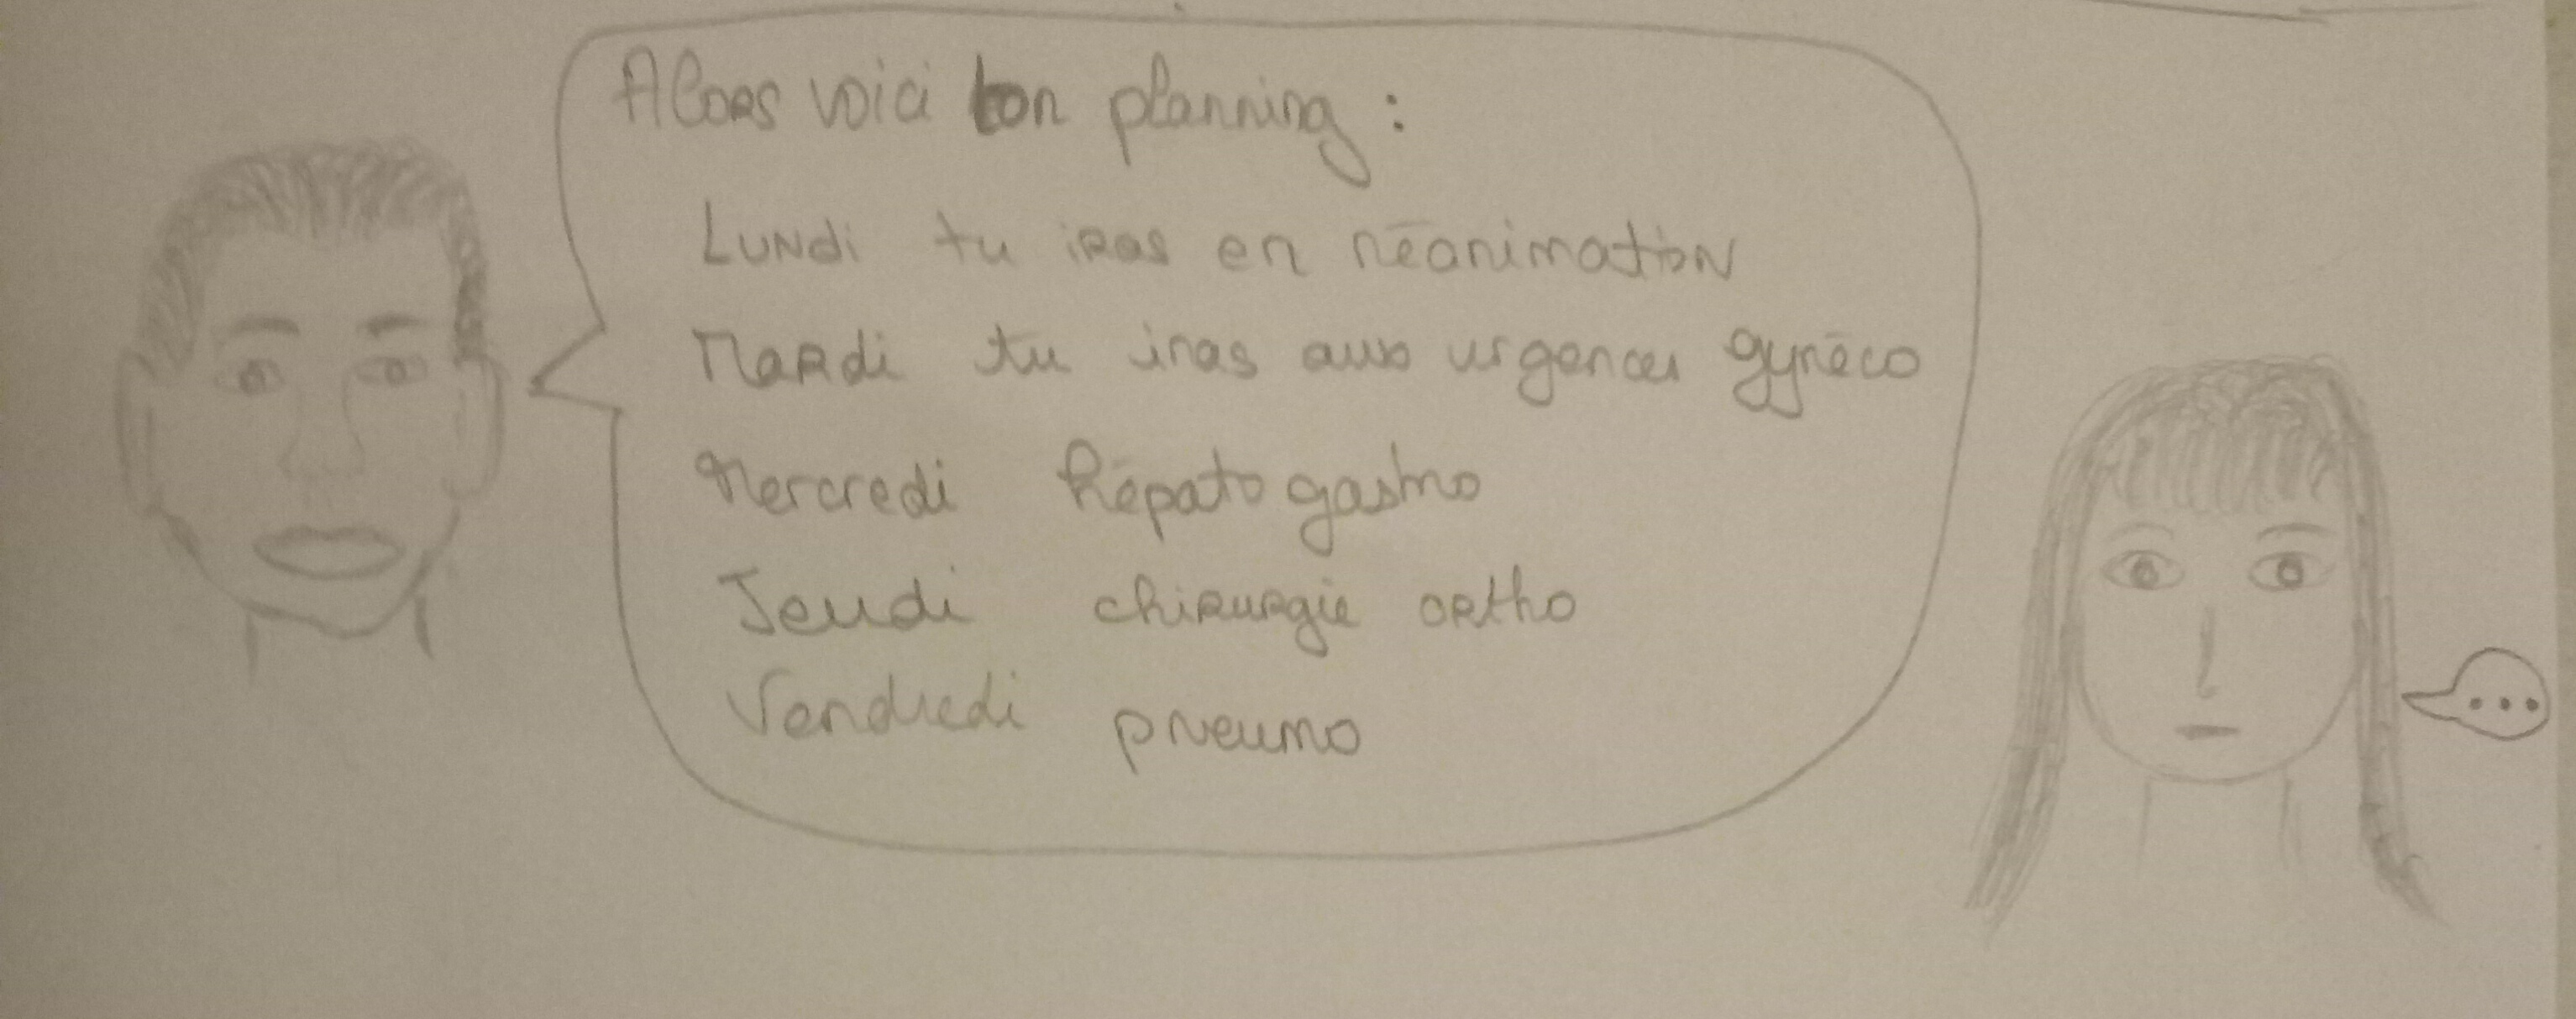 Alors voici ton planning :
Lundi tu iras en réanimation
Mardi tu iras aux urgences gynéco
Mercredi hépato gastro
Jeudi chirurgie ortho
Vendredi pneumo
...